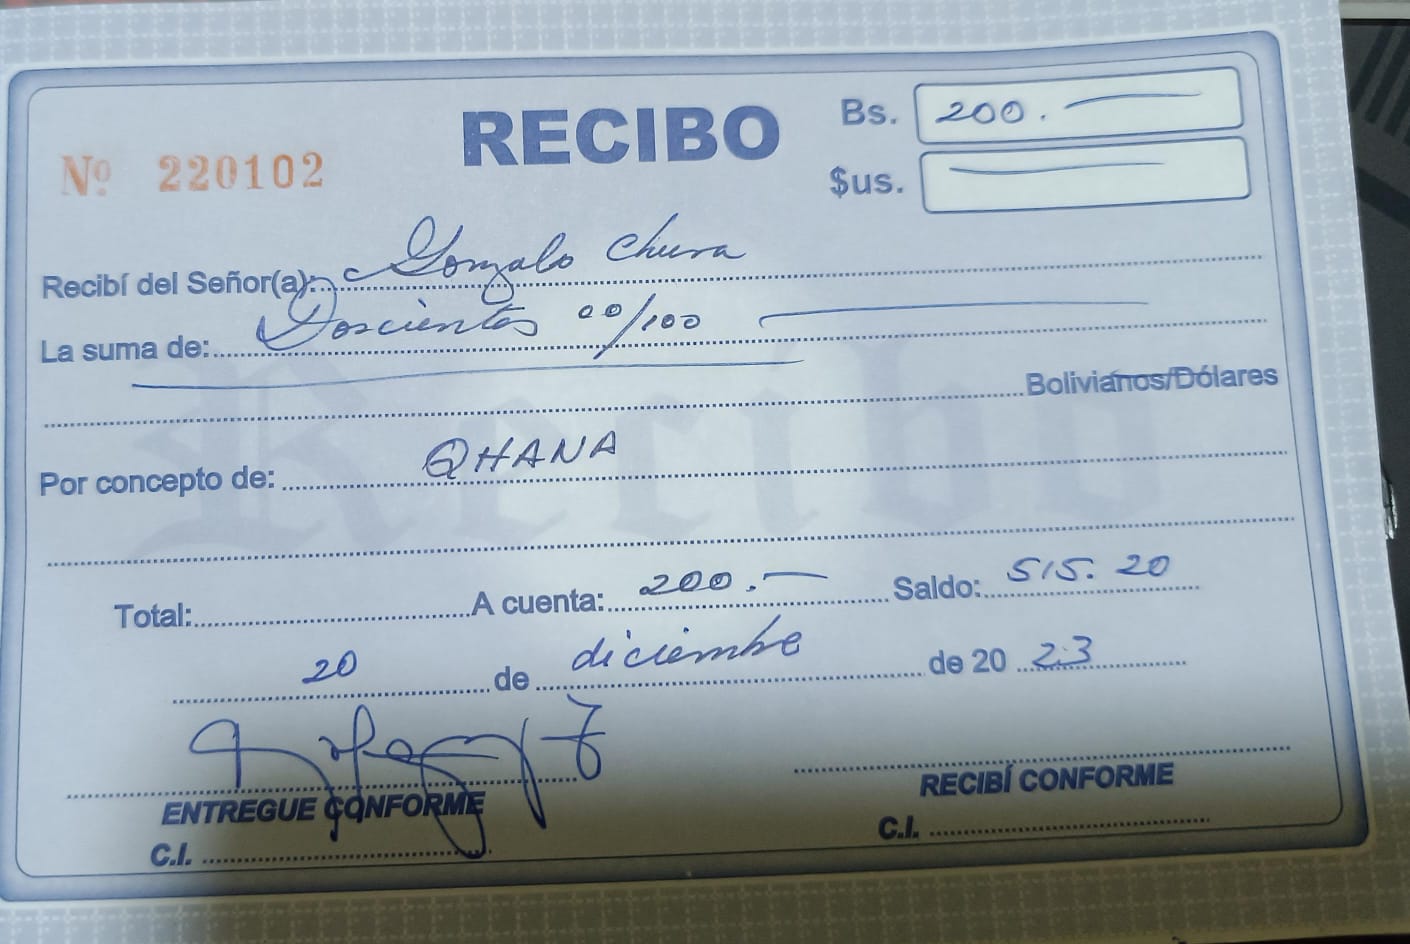 RECIBO
Bs. 200.
Nº 220102
$us.
Recibí del Señor(a): Gonzalo Chura
La suma de: Doscientos 00/100
Bolivianos/Dólares
Por concepto de: QHANA
Recibo
Total: A cuenta: 200.- Saldo: 515.20
20 de diciembre de 20 23
ENTREGUE CONFORME
RECIBÍ CONFORME
C.I.
C.I.